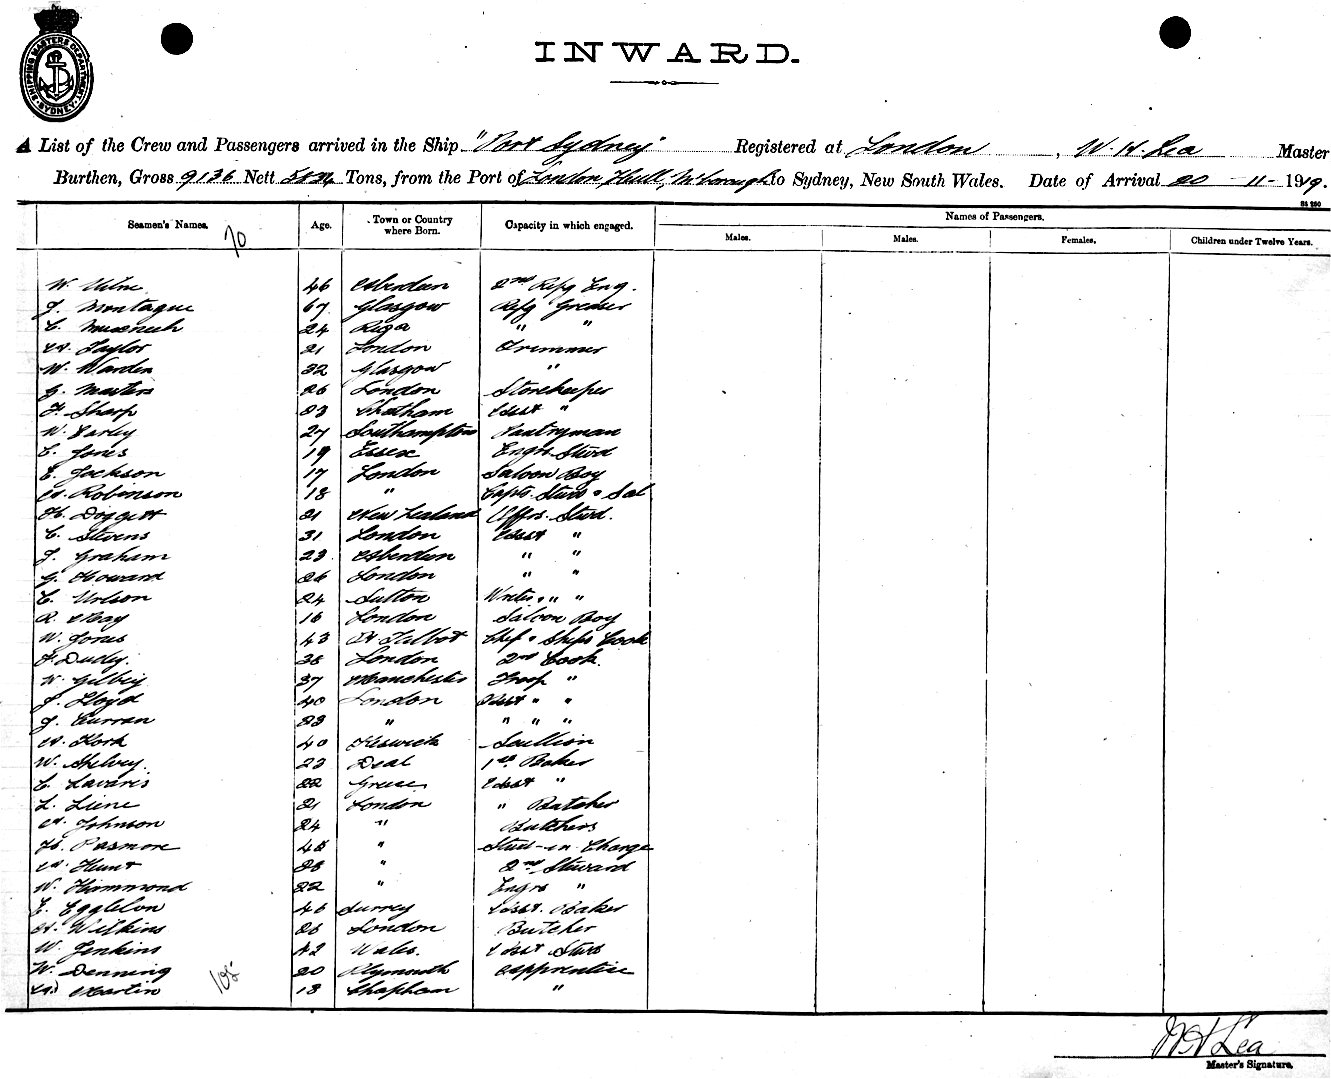 SHIPPING MASTERS DEPARTMENT
SYDNEY
INWARD.
A List of the Crew and Passengers arrived in the Ship "Port Sydney" Registered at London, W. H. Lea Master
Burthen, Gross 9136 Nett Tons, from the Port of London, Hull, to Sydney, New South Wales. Date of Arrival 20-11-1919.
Seamen's Names. 70 Age. Town or Country where Born. Capacity in which engaged. Names of Passengers.
Males. Males. Females. Children under Twelve Years.
W. Milne 46 Aberdeen 2nd Refg Eng.
J. Montague 67 Glasgow Refg Greaser
C. 24 Riga " "
A. Taylor 21 London Trimmer
W. Warden 32 Glasgow "
G. Masters 26 London Storekeeper
F. Sharp 23 Chatham Asst "
W. Varley 27 Southampton Pantryman
C. Jones 19 Essex Engrs Stwd
E. Jackson 17 London Saloon Boy
A. Robinson 18 " Capts. Stwd & Sal
H. Doggett 21 New Zealand Offrs. Stwd.
C. Stevens 31 London Asst "
J. Graham 23 Aberdeen " "
G. Howard 26 London " "
C. Wilson 24 Sutton " "
R. 16 London Saloon Boy
W. Jones 43 Pt Talbot Chef & Ships Cook
F. 38 London 2nd Cook.
W. Gilbey 37 Manchester Troop "
J. Lloyd 40 London Asst " "
J. Curran 23 " " " "
A. 40 Keswick Scullion
W. 23 Deal 1st Baker
C. Lavaris 22 Greece Asst "
L. Liene 21 London " Butcher
A. Johnson 24 " Butchers
H. Pasmore 45 " Stwd-in Charge
A. Hunt 28 " 2nd Steward
W. Hammond 22 " Engrs "
E. Eggleton 46 Surrey Asst. Baker
A. Wilkins 26 London Butcher
W. Jenkins 42 Wales. Asst Stwd
W. Denning 20 Plymouth Apprentice
Martin 18 Clapham "
W H Lea
Master's Signature.